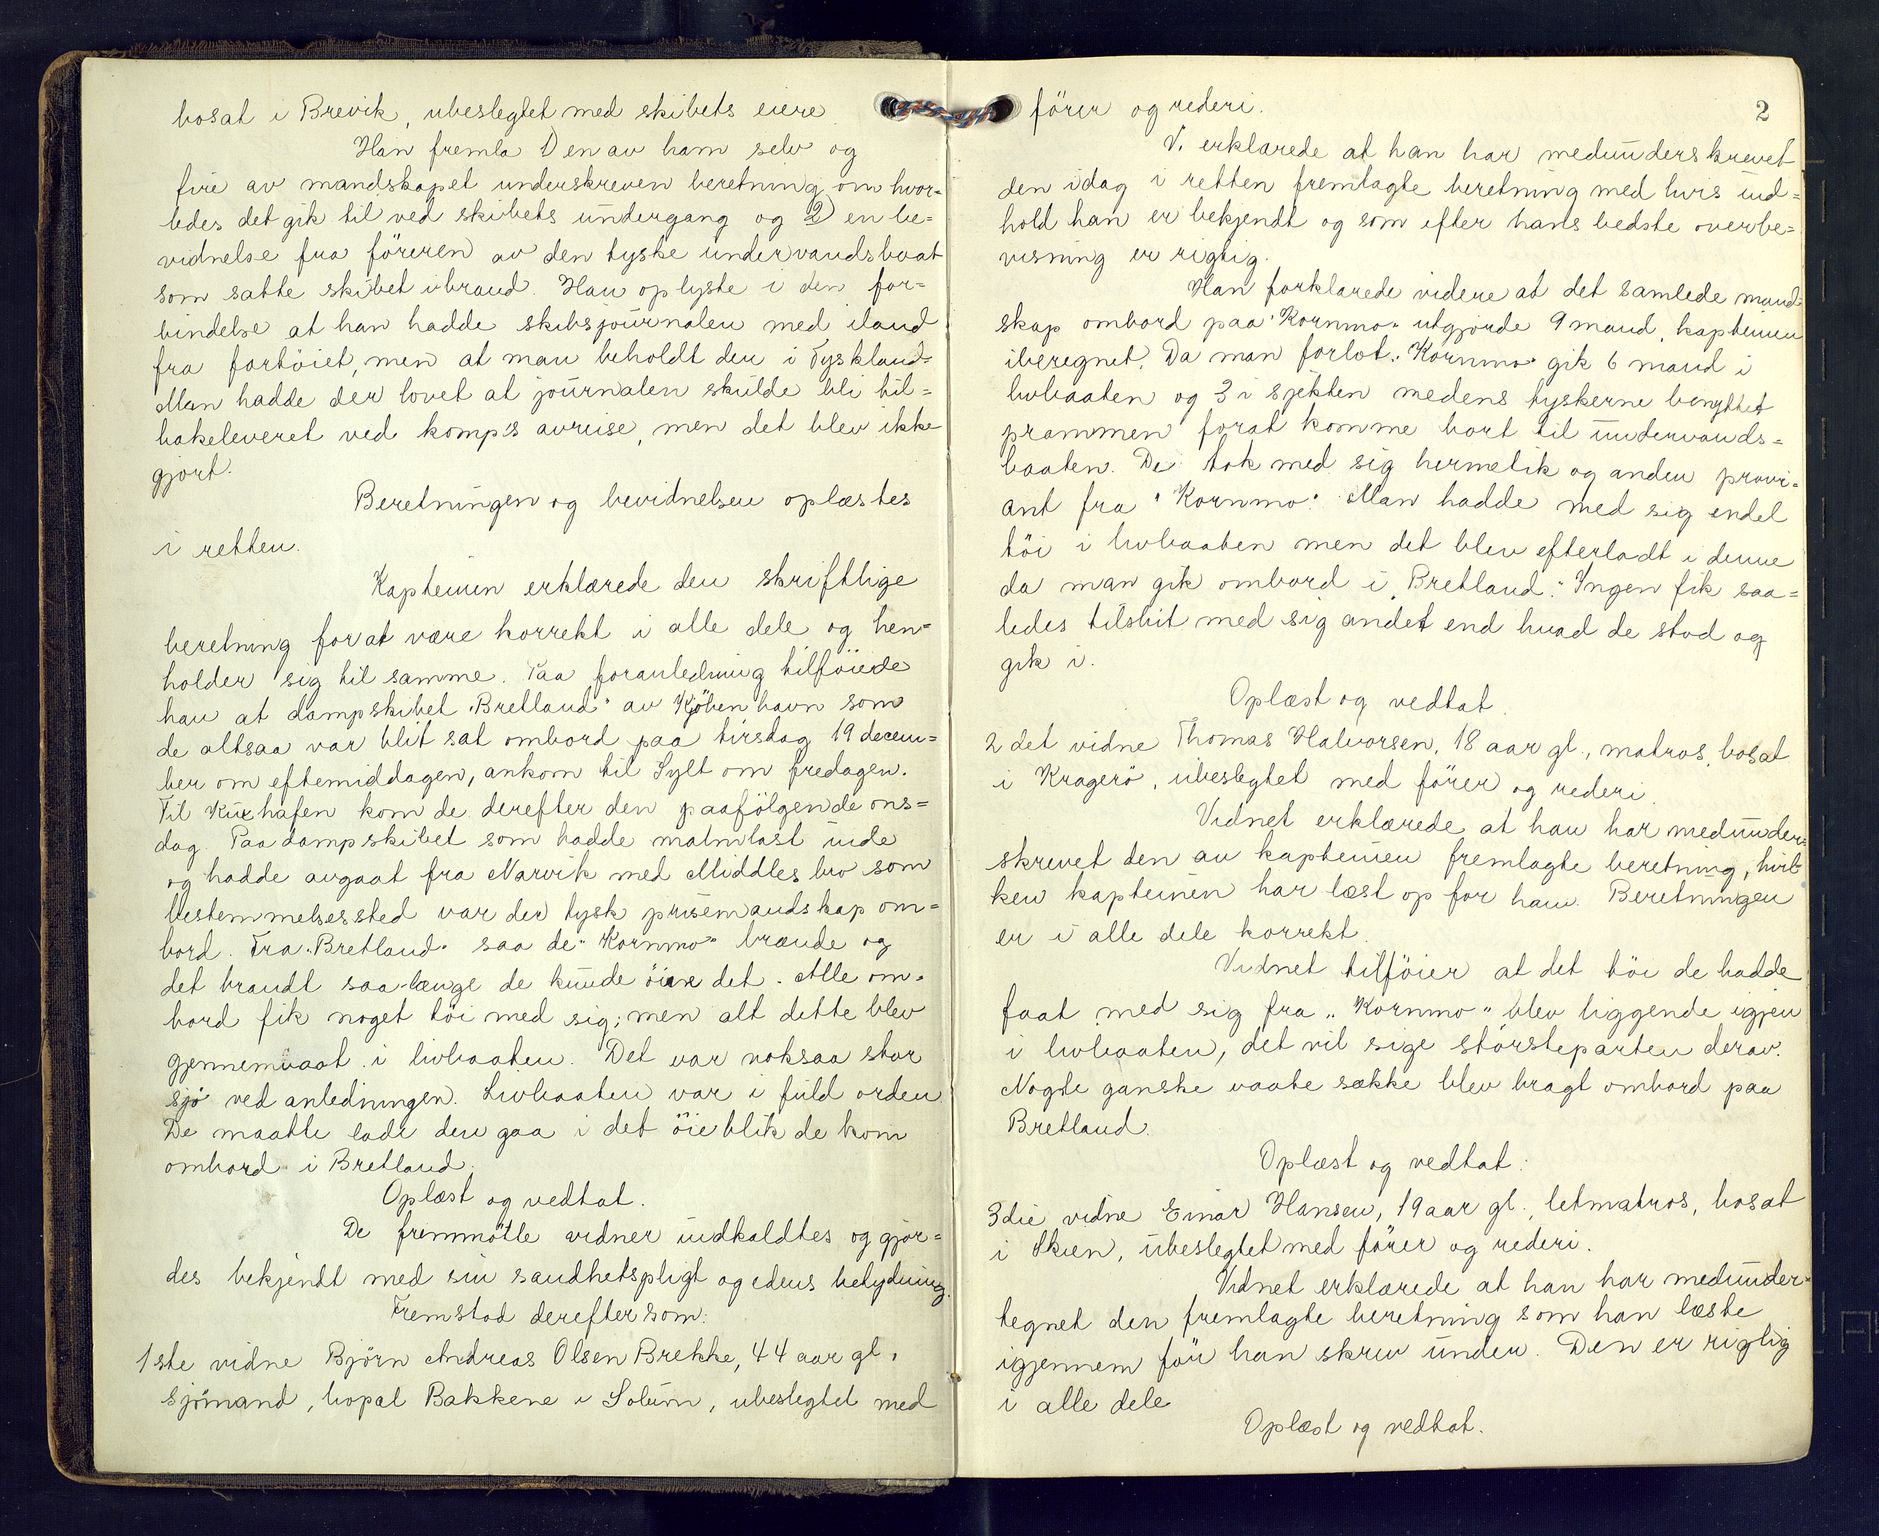 bosat i Brevik, ubeslegtet med skibets eiere
Han fremla 1) en av ham selv og
fire av mandskapet underskreven beretning om hvor-
ledes det gik til ved skibets undergang og 2) en be-
vidnelse fra föreren av den tyske undervandsbaat
som satte skibet ibrand. Han oplyste i den for-
bindelse at han hadde skibsjournalen med iland
fra fartöiet, men at man beholdt den i Tyskland.
Man hadde der lovet at journalen skulde bli til-
bakeleveret ved komp's avreise, men det blev ikke
gjort.
Beretningen og bevidnelsen oplæstes
i retten.
Kapteinen erklærede den skriftlige
beretning for at være korrekt i alle dele og hen-
holder sig til samme. Paa foranledning tilföiede
han at dampskibet "Bretland" av Kjöbenhavn som
de altsaa var blit sat ombord paa tirsdag 19 decem-
ber om eftemiddagen, ankom til Sylt om fredagen.
Til Kuxhafen kom de derefter den paafölgende ons-
dag. Paa dampskibet som hadde malmlast inde
og hadde avgaat fra Narvik med Middlesbro som
bestemmelsessted var der tysk prisemandskap om-
bord. Fra "Bretland" saa de "Kornmo" brænde og
det brandt saa længe de kunde öine det. Alle om-
bord fik noget töi med sig; men alt dette blev
gjennemvaat i livbaaten. Det var noksaa stor
sjö ved anledningen. Livbaaten var i fuld orden
De maatte lade den gaa i det öieblik de kom
ombord i Bretland.
Oplæst og vedtat.
De fremmötte vidner indkaldtes og gjor-
des bekjendt med sin sandhetspligt og edens betydning.
Fremstod derefter som:
1ste vidne Björn Andreas Olsen Brekke, 44 aar gl.
sjömand, bopæl Bakkene i Solum, ubeslegtet med
2
förer og rederi.
V. erklærede at han har medunderskrevet
den idag i retten fremlagte beretning med hvis ind-
hold han er bekjendt og som efter hans bedste overbe-
visning er rigtig.
Han forklarede videre at det samlede mand-
skap ombord paa "Kornmo" utgjorde 9 mand, kapteinen
iberegnet. Da man forlot "Kornmo" gik 6 mand i
livbaaten og 3 i sjekten medens tyskerne benyttet
prammen forat komme bort til undervands-
baaten. De tok med sig hermetik og anden provi-
ant fra "Kornmo". Man hadde med sig endel
töi i livbaaten men det blev efterladt i denne
da man gik ombord i "Bretland". Ingen fik saa-
ledes tilslut med sig andet end hvad de stod og
gik i.
Oplæst og vedtat.
2 det vidne Thomas Halvorsen, 18 aar gl., matros, bosat
i Kragerö, ubeslegtet med förer og rederi.
Vidnet erklærede at han har medunder-
skrevet den av kapteinen fremlagte beretning, hvil-
ken kapteinen har læst op for ham. Beretningen
er i alle dele korrekt.
Vidnet tilföier at det töi de hadde
faat med sig fra "Kornmo" blev liggende igjen
i livbaaten, det vil sige störsteparten derav.
Nogle ganske vaate sække blev bragt ombord paa
Bretland.
Oplæst og vedtat.
3die vidne Einar Hansen, 19 aar gl., letmatros, bosat
i Skien, ubeslegtet med förer og rederi.
Vidnet erklærede at han har medunder-
tegnet den fremlagte beretning som han læste
igjennem för han skrev under. Den er rigtig
i alle dele
Oplæst og vedtat.